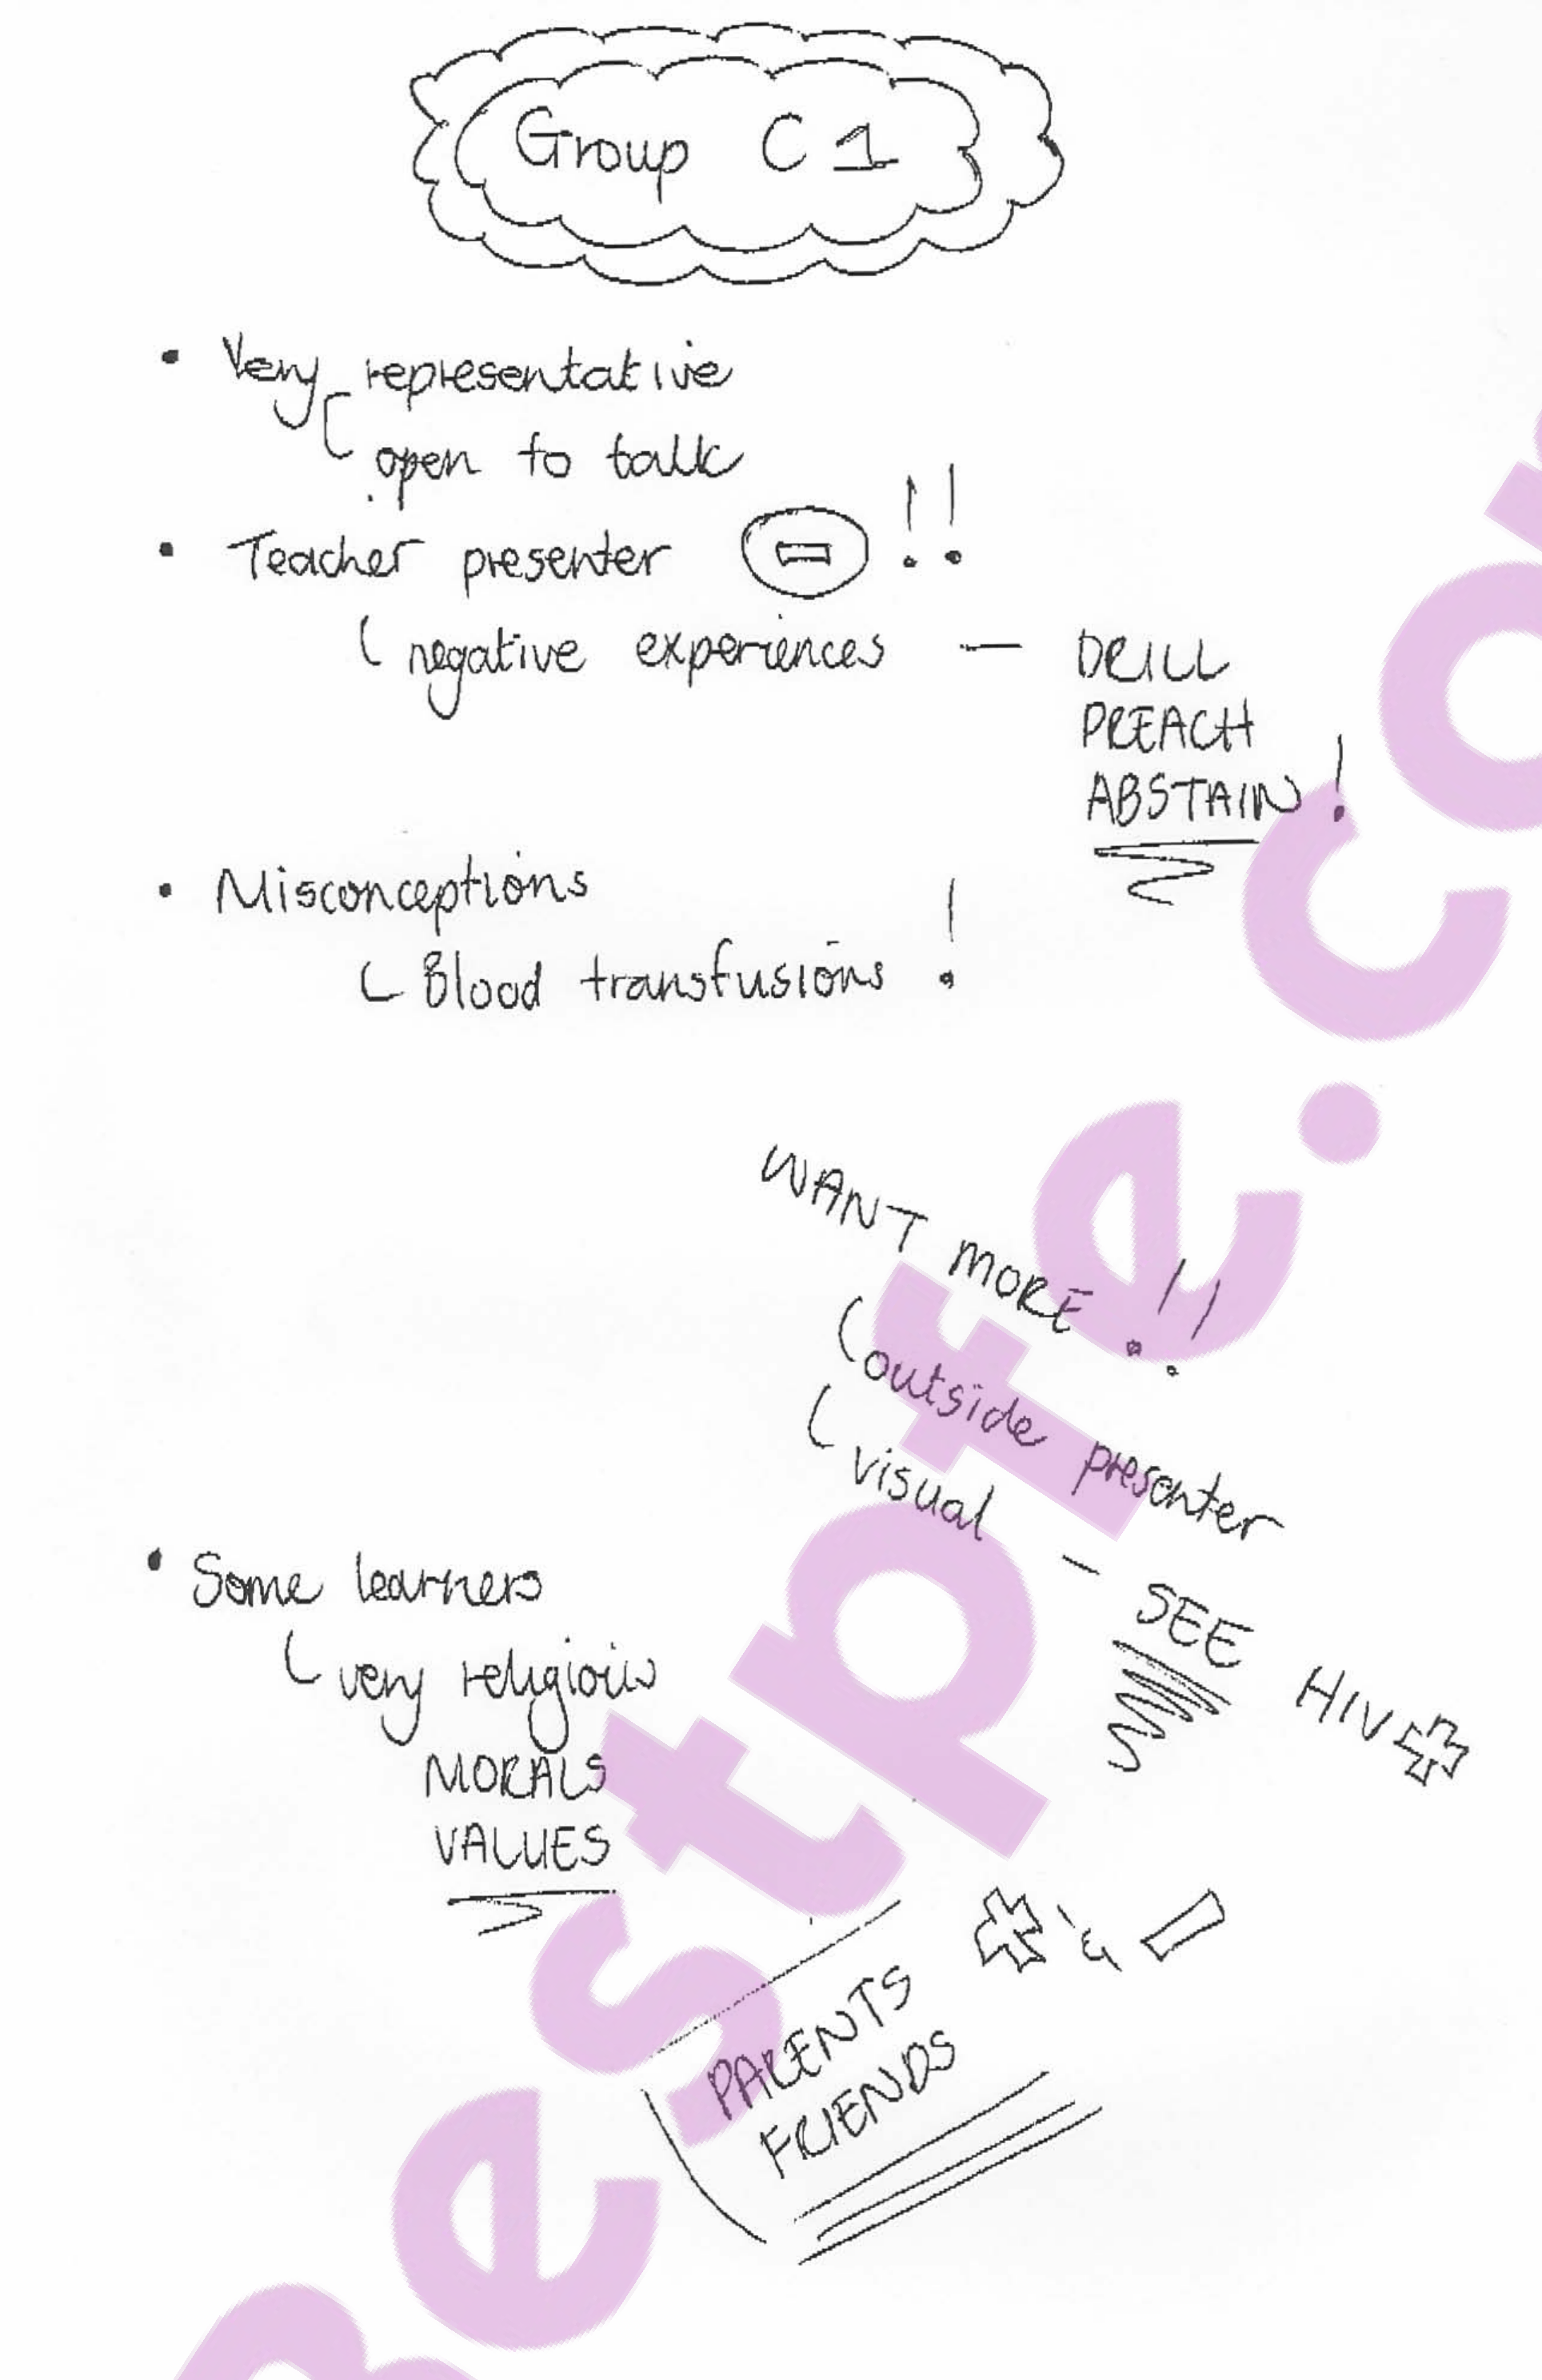 Group C 1
• Very representative
open to talk
• Teacher presenter ⊖ !!
negative experiences — DRILL
PREACH
ABSTAIN !
• Misconceptions
Blood transfusions !
WANT MORE !!
outside presenter
visual – SEE HIV+
• Some learners
very religious
MORALS
VALUES
+ & -
PARENTS
FRIENDS
Bestpfe.co